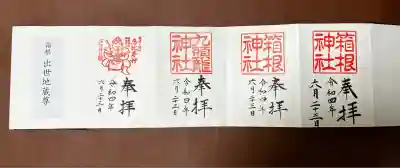 奉拝
箱根神社
令和四年
六月二十三日
奉拝
箱根神社
令和四年
六月二十三日
奉拝
九頭龍神社
令和四年
六月二十三日
奉拝
令和四年
六月二十三日
出世地蔵尊